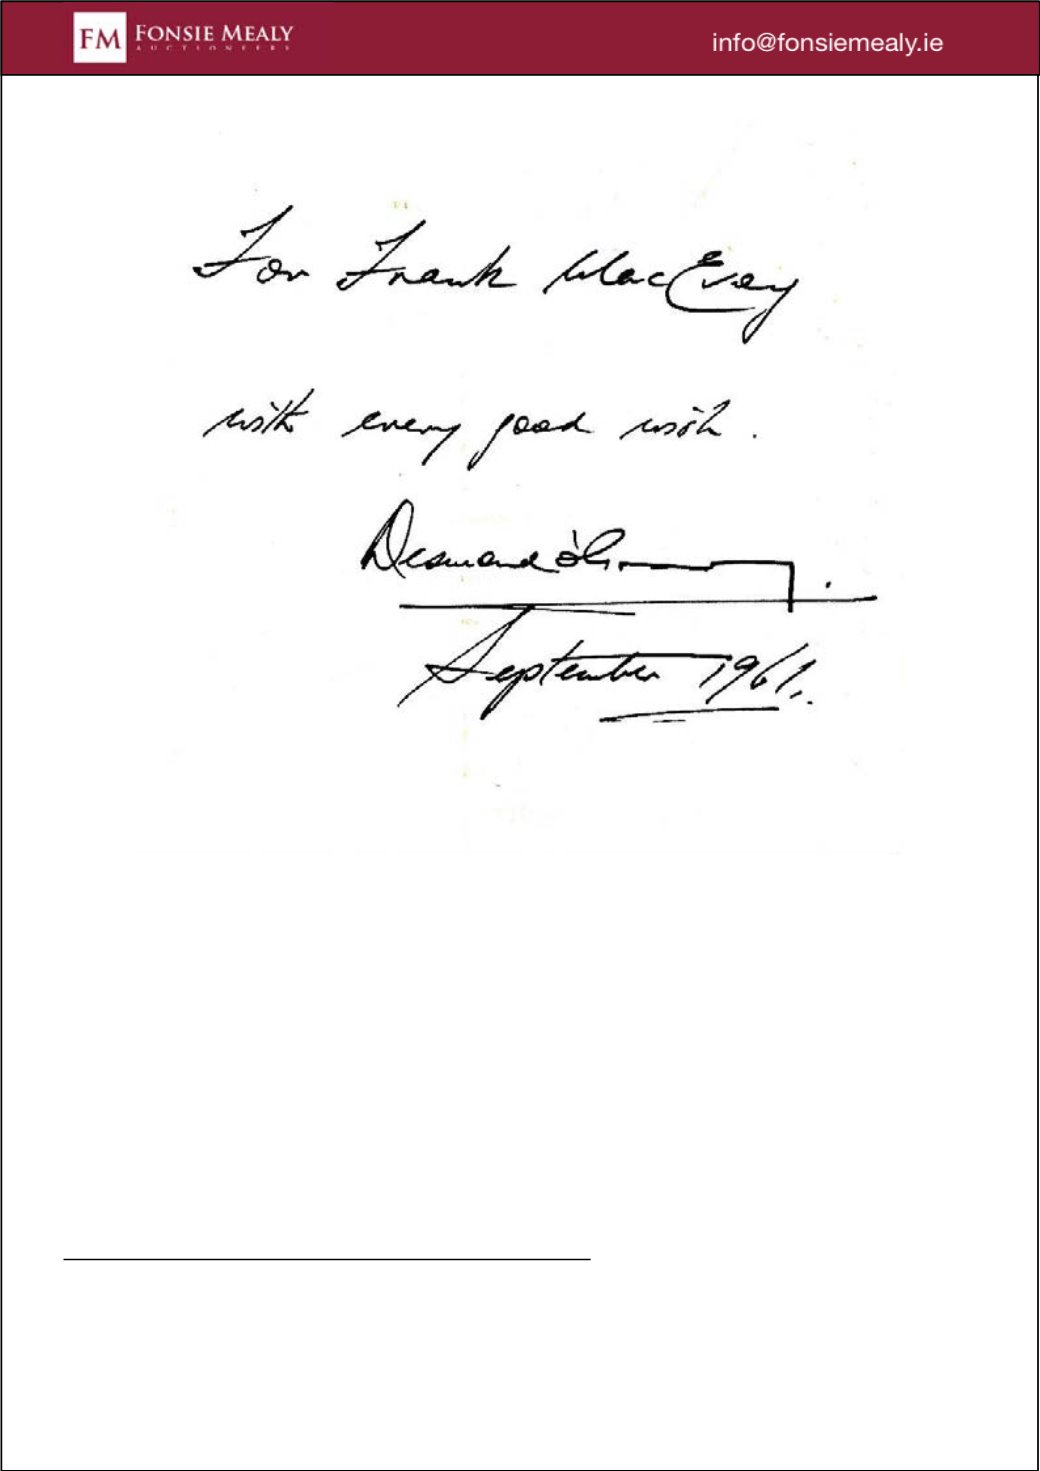 FM FONSIE MEALY
AUCTIONEERS
info@fonsiemealy.ie
For Frank MacEvoy
with every good wish.
Desmond
September 1961.